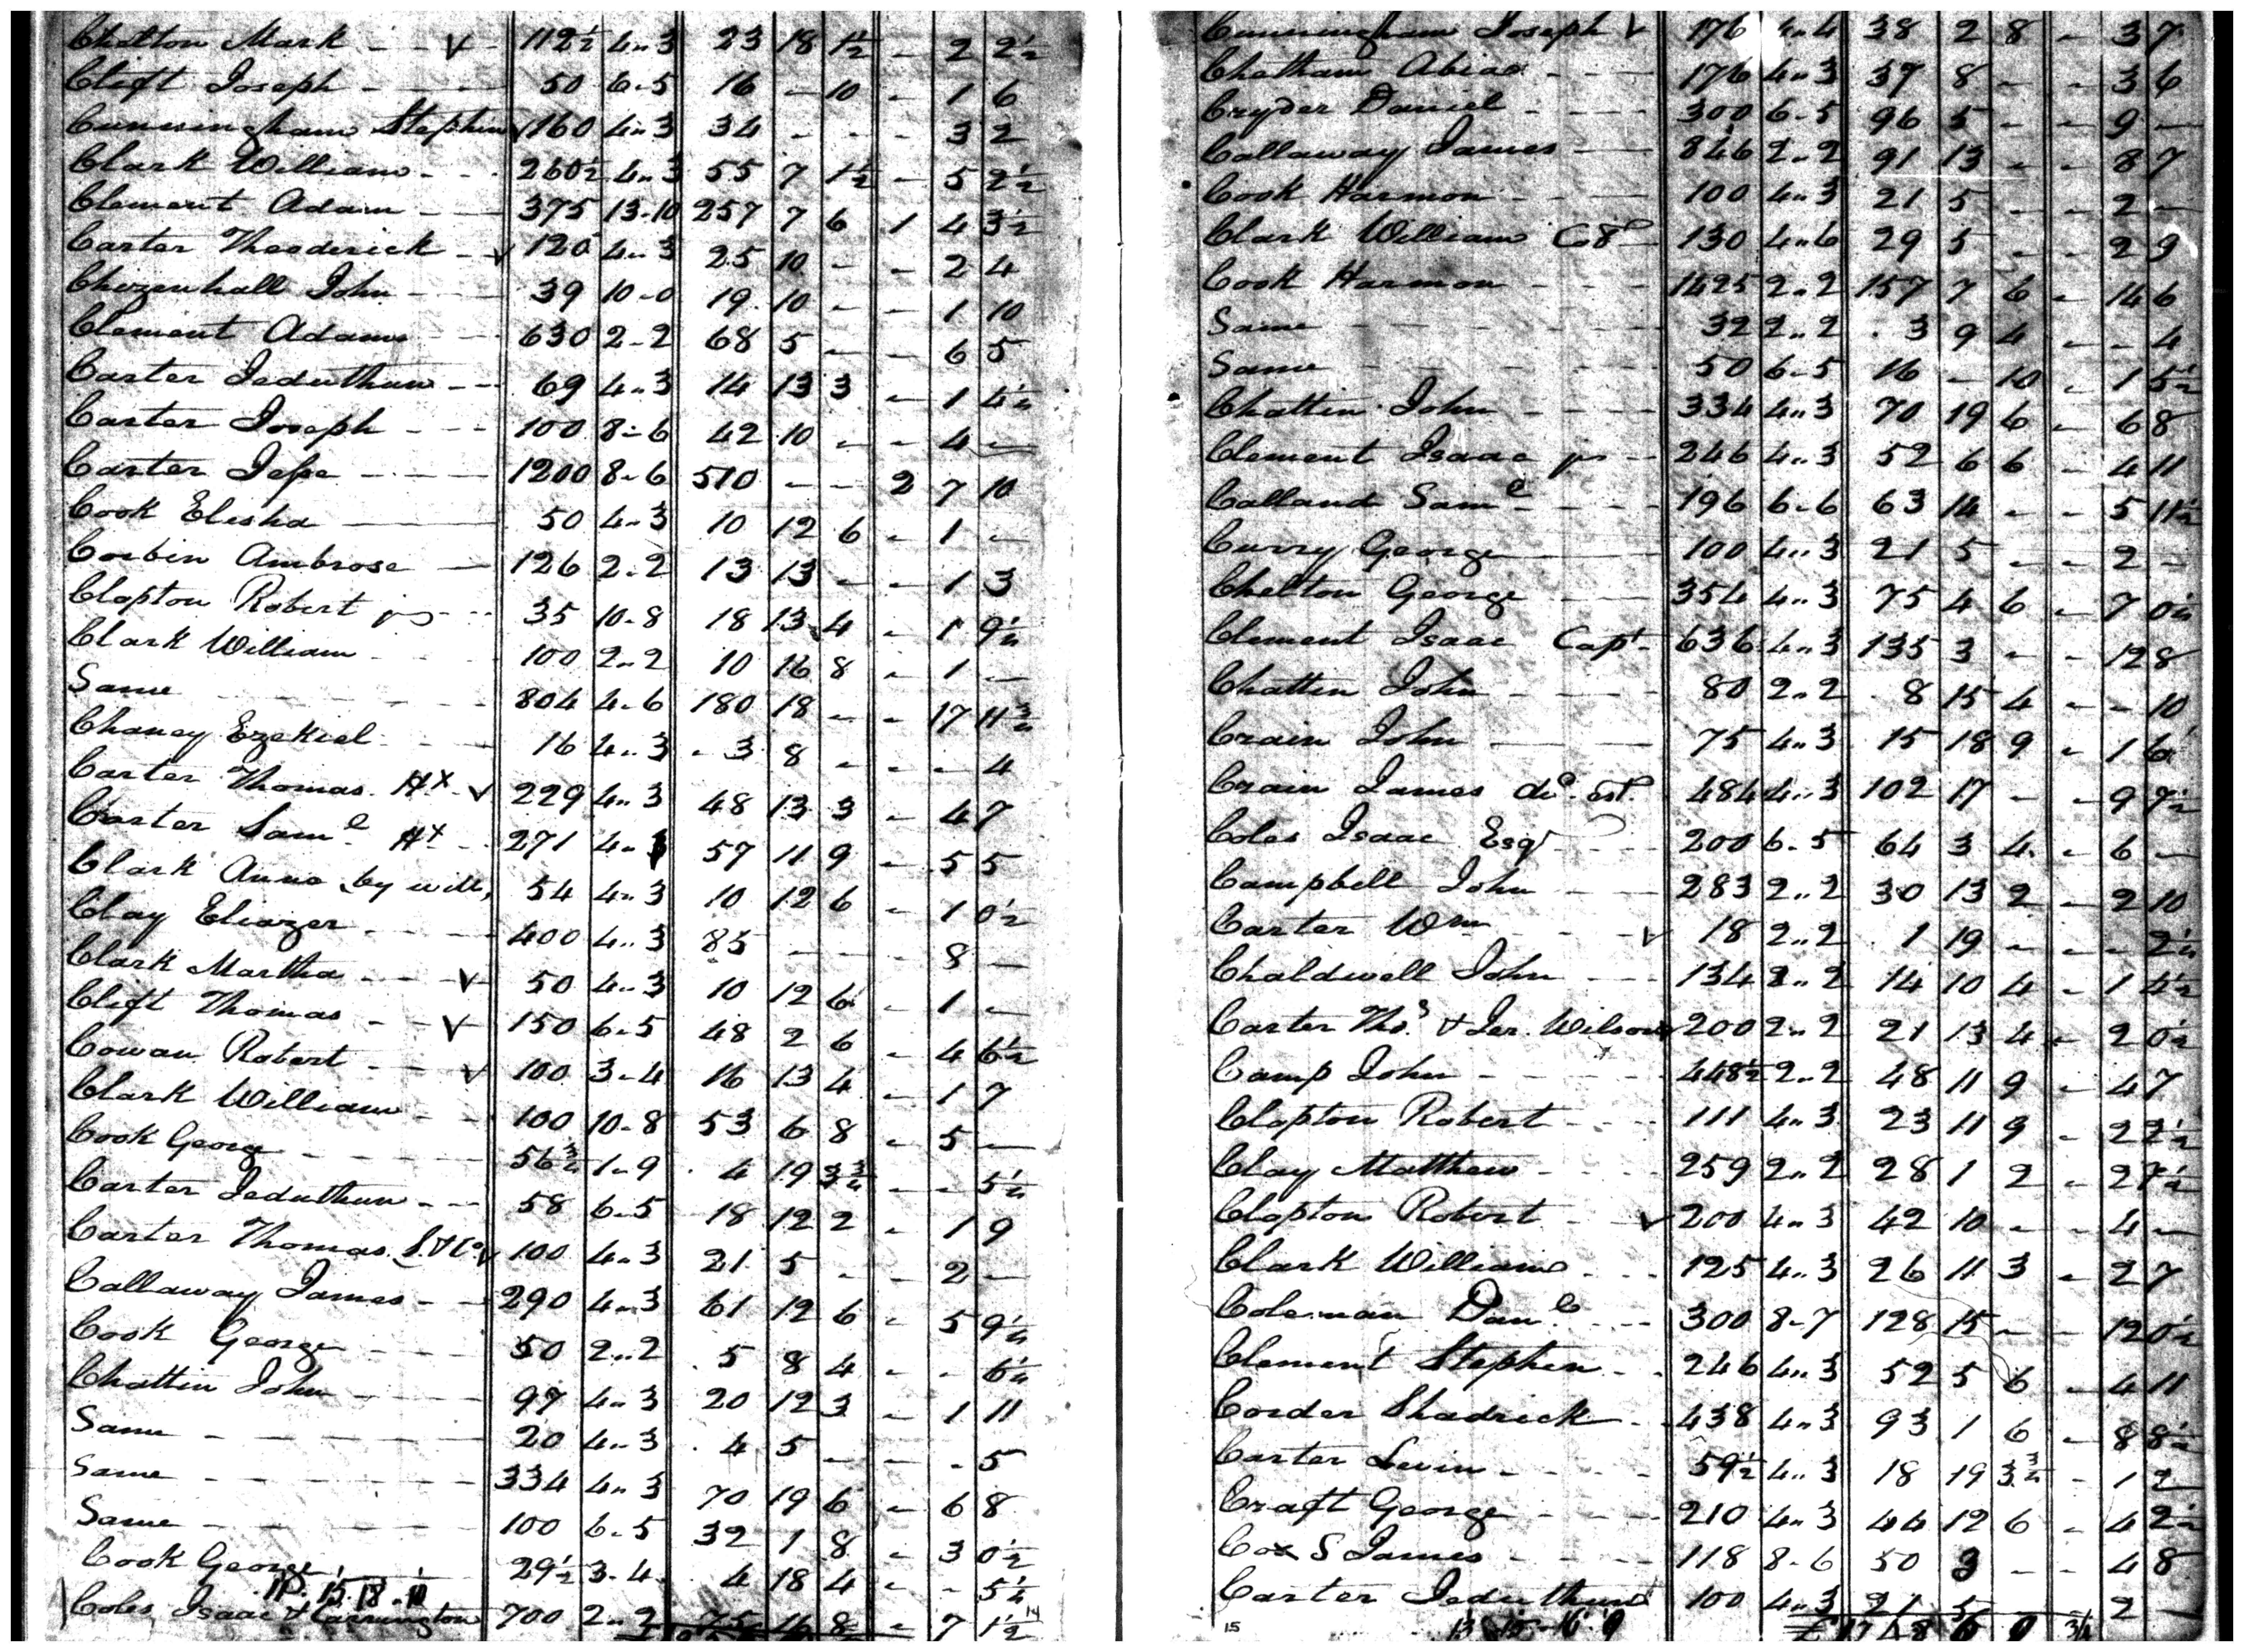 Chelton Mark - - v 112½ 4"3 23 18 1½ - 2 2½
Clift Joseph - - - 50 6-5 16 - 10 - 1 6
Cunningham Stephen v 160 4"3 34 - - - 3 2
Clark William - - - 260½ 4"3 55 7 1½ - 5 2½
Clement Adam - - 375 13-10 257 7 6 1 4 3½
Carter Theoderick - v 120 4"3 25 10 - - 2 4
Chizenhall John - - 39 10-0 19 10 - - 1 10
Clement Adams - - 630 2-2 68 5 - - 6 5
Carter Jeduthun - - 69 4-3 14 13 3 - 1 4¼
Carter Joseph - - - 100 8-6 42 10 - - 4 -
Carter Jesse - - - 1200 8-6 510 - - 2 7 10
Cook Elisha - - 50 4-3 10 12 6 - 1 -
Corbin Ambrose - 126 2-2 13 13 - - 1 3
Clopton Robert jr - - 35 10-8 18 13 4 - 1 9¼
Clark William - - 100 2"2 10 16 8 - 1 -
Same - - - 804 4-6 180 18 - - 17 11¾
Chaney Ezekiel - - 16 4"3 - 3 8 - - - 4
Carter Thomas HX v 229 4"3 48 13 3 - 4 7
Carter Saml HX - 271 4" 57 11 9 - 5 5
Clark Anna by will, 54 4"3 10 12 6 - 1 0½
Clay Eliazer - - - 400 4"3 85 - - - 8 -
Clark Martha - - v 50 4"3 10 12 6 - 1 -
Clift Thomas - - v 150 6-5 48 2 6 - 4 6½
Cowan Robert - - v 100 3-4 16 13 4 - 1 7
Clark William - - 100 10-8 53 6 8 - 5 -
Cook George - - - 56¾ 1-9 4 19 3¾ - - 5½
Carter Jeduthun - - 58 6-5 18 12 2 - 1 9
Carter Thomas v 100 4"3 21 5 - - 2 -
Callaway James - - 290 4"3 61 12 6 - 5 9¼
Cook George - - - 50 2"2 5 8 4 - - 6¼
Chattin John - - - 97 4"3 20 12 3 - 1 11
Same - - - 20 4"3 4 5 - - - 5
Same - - - 334 4"3 70 19 6 - 6 8
Same - - - 100 6-5 32 1 8 - 3 0½
Cook George 29½ 3-4 4 18 4 - - 5¼
Coles Isaac & Carrington 700 2"2 75 16 8 - 7 1½
14
Cunningham Joseph v 176 4"4 38 2 8 - 3 7
Chatham Abiao - - - 176 4"3 37 8 - - 3 6
Cryder Daniel - - - 300 6-5 96 5 - - 9 -
Callaway James - 846 2"2 91 13 - - 8 7
Cook Harmon - - - 100 4"3 21 5 - - 2 -
Clark William - 130 4"6 29 5 - - 2 9
Cook Harmon - - - 1425 2"2 157 7 6 - 14 6
Same - - - 32 2"2 3 9 4 - - 4
Same - - - 50 6-5 16 - 10 - 1 5½
Chattin John - - - 334 4"3 70 19 6 - 6 8
Clement Isaac jr - - 246 4"3 52 6 6 - 4 11
Calland Saml - - 196 6-6 63 14 - - 5 11½
Curry George - - 100 4"3 21 5 - - 2 -
Chelton George - - 354 4"3 75 4 6 - 7 0¼
Clement Isaac Capt - 636 4"3 135 3 - - 12 8
Chattin John - - - 80 2"2 8 15 4 - - 10
Crain John - - 75 4"3 15 18 9 - 1 6
Crain James decd est. 484 4"3 102 17 - - 9 7½
Coles Isaac Esqr - - 200 6-5 64 3 4 - 6 -
Campbell John - - 283 2"2 30 13 2 - 2 10
Carter Wm - - v 18 2"2 1 19 - - - 2¼
Chaldwell John - - 134 2"2 14 10 4 - 1 4½
Carter Thos & Jer. Wilson 200 2"2 21 13 4 - 2 0½
Camp John - - - 448½ 2"2 48 11 9 - 4 7
Clopton Robert - - - 111 4"3 23 11 9 - 2 2½
Clay Matthew - - - 259 2"2 28 1 2 - 2 7½
Clopton Robert - v 200 4"3 42 10 - - 4 -
Clark William - - - 125 4"3 26 11 3 - 2 7
Coleman Danl - - 300 8-7 128 15 - - 12 0½
Clement Stephen - - 246 4"3 52 5 6 - 4 11
Corder Shadrick - - 438 4"3 93 1 6 - 8 8½
Carter Levin - - - 59½ 4"3 18 19 3¾ - 1 2
Craft George - - - 210 4"3 44 12 6 - 4 2½
Cox S James - - - 118 8-6 50 3 - - 4 8
Carter Jeduthun 100 4"3 21 5 - - 2 -
15